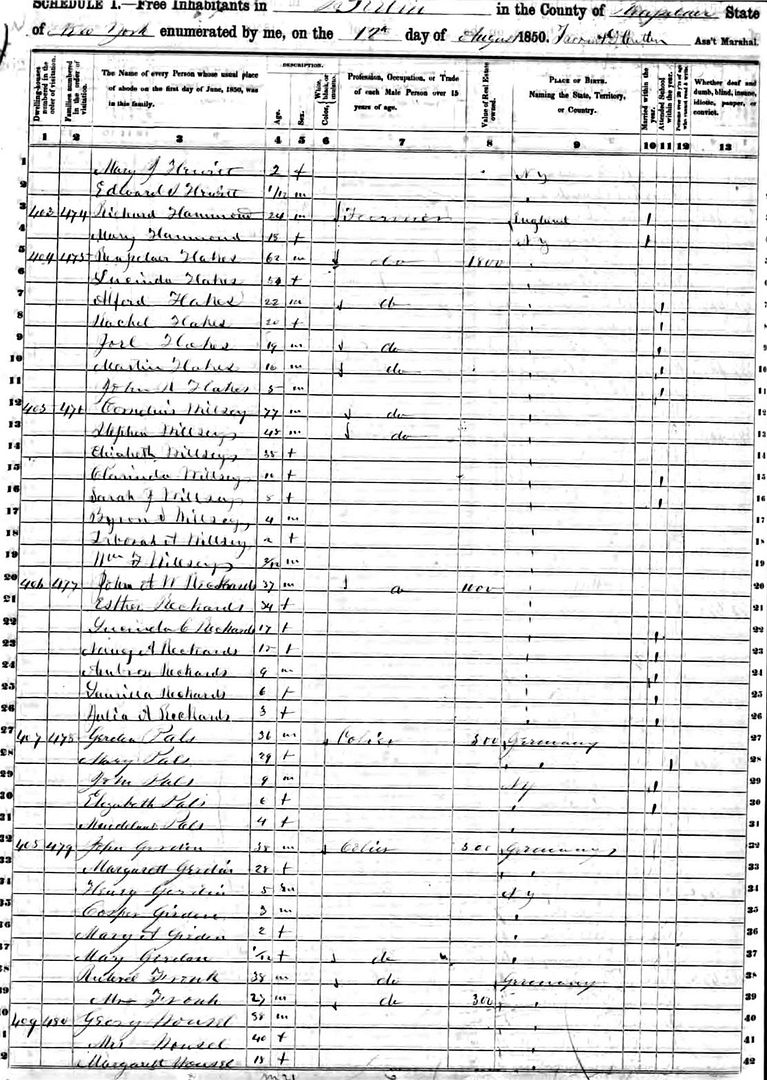 SCHEDULE I.—Free Inhabitants in in the County of State
of New York enumerated by me, on the 17th day of August 1850. Ass't Marshal.
Dwelling-houses numbered in the order of visitation.
Families numbered in the order of visitation.
The Name of every Person whose usual place of abode on the first day of June, 1850, was in this family.
DESCRIPTION.
Age.
Sex.
Color, White, black, or mulatto.
Profession, Occupation, or Trade of each Male Person over 15 years of age.
Value of Real Estate owned.
PLACE OF BIRTH. Naming the State, Territory, or Country.
Married within the year.
Attended School within the year.
Persons over 20 y'rs of age who cannot read & write.
Whether deaf and dumb, blind, insane, idiotic, pauper, or convict.
1 2 3 4 5 6 7 8 9 10 11 12 13
1 Mary J Hewitt 2 f NY
2 Edward S Hewitt 1/12 m
3 403 474 Richard Hammond 24 m Farmer England 1
4 Mary Hammond 18 f NY 1
5 404 475 Flakes 62 m do 1800
6 Lucinda Flakes 54 f
7 Alford Flakes 22 m do 1
8 Rachel Flakes 20 f 1
9 Joel Flakes 19 m do 1
10 Martin Flakes 16 m do 1
11 John Flakes 5 m 1
12 405 476 Cornelius Willsey 77 m do
13 Stephen Willsey 48 m do
14 Elizabeth Willsey 38 f
15 Clarinda Willsey f 1
16 Sarah J Willsey 8 f 1
17 Byron S Willsey 4 m
18 Deborah A Willsey 2 f
19 Wm F Willsey m
20 406 477 John W Reckards 37 m do 1000
21 Esther Reckards 34 f
22 Lucinda C Reckards 17 f 1
23 Nancy A Reckards 12 f 1
24 Ambros Reckards 9 m 1
25 Laurilla Reckards 6 f 1
26 Julia A Reckards 3 f 1
27 407 478 Pals 36 m 300 Germany
28 Mary Pals 29 f 1
29 John Pals 9 m NY 1
30 Elizabeth Pals 6 f 1
31 Pals 4 f
32 408 479 John Gerdin 38 m 300 Germany
33 Margarett Gerdin 28 f
34 Henry Gerdin 5 m NY
35 Casper Girden 3 m
36 Mary A Girden 2 f
37 Mary Gerdon 1/12 f do
38 38 m do Germany
39 27 m do 300
40 409 480 Georg Housel 38 m
41 Mrs Housel 40 f
42 Margarett Housel 18 f